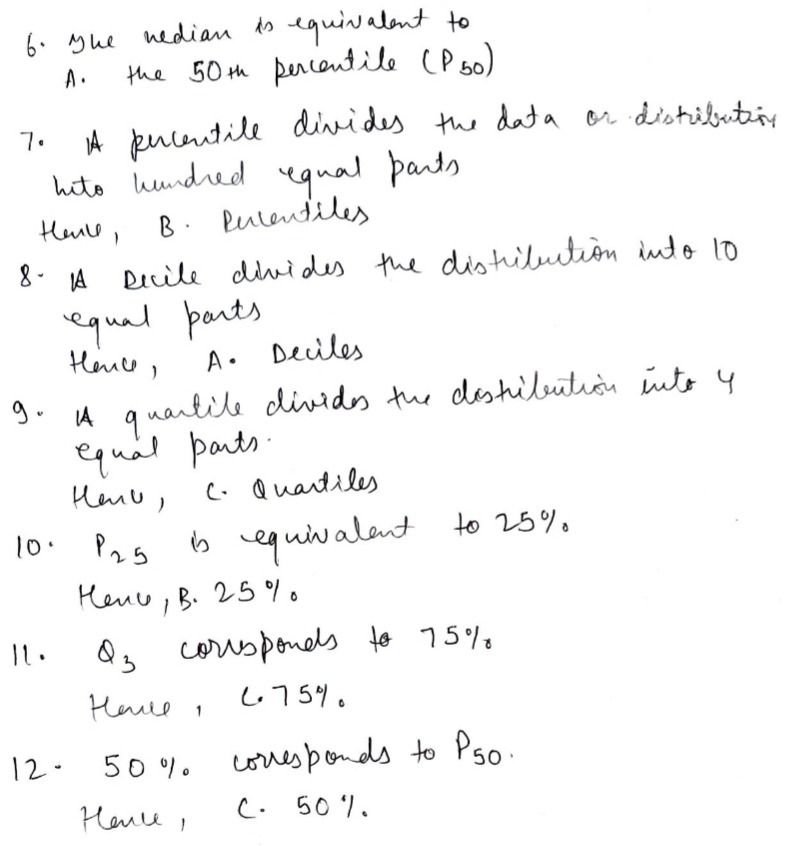 6. The median is equivalent to
A. the 50th percentile (P50)
7. A percentile divides the data or distribution
into hundred equal parts
Hence, B. Percentiles
8. A Decile divides the distribution into 10
equal parts
Hence, A. Deciles
9. A quartile divides the distribution into 4
equal parts.
Hence, C. Quartiles
10. P25 is equivalent to 25%.
Hence, B. 25%.
11. Q3 corresponds to 75%.
Hence, C. 75%.
12. 50%. corresponds to P50.
Hence, C. 50%.